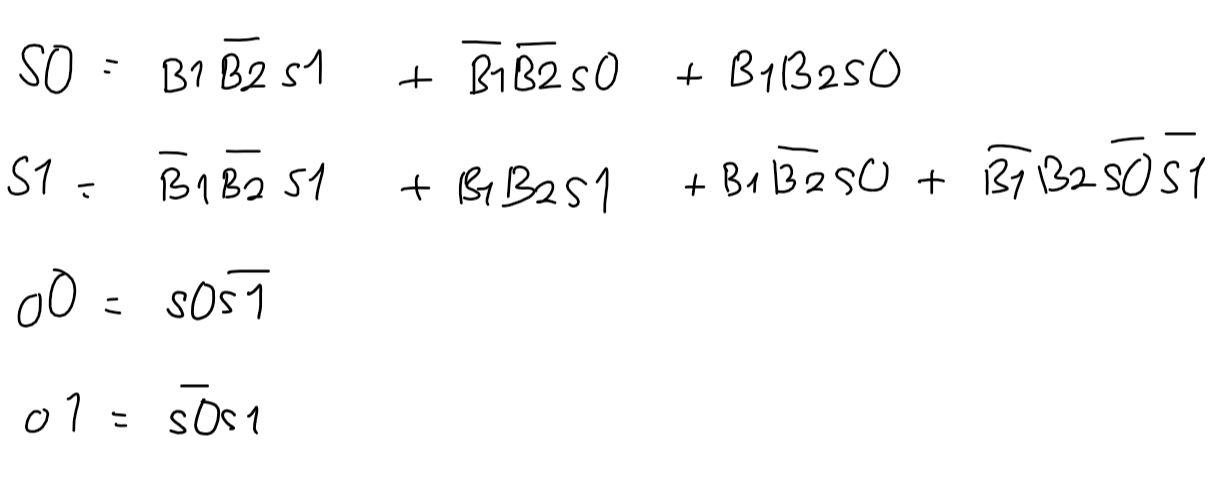 S0 = B1 B̅2̅ S1 + B̅1̅ B̅2̅ S0 + B1B2S0
S1 = B̅1 B̅2̅ S1 + B1B2S1 + B1B̅2̅S0 + B̅1̅B2S̅0̅S̅1̅
O0 = S0S̅1̅
O1 = S̅0̅S1